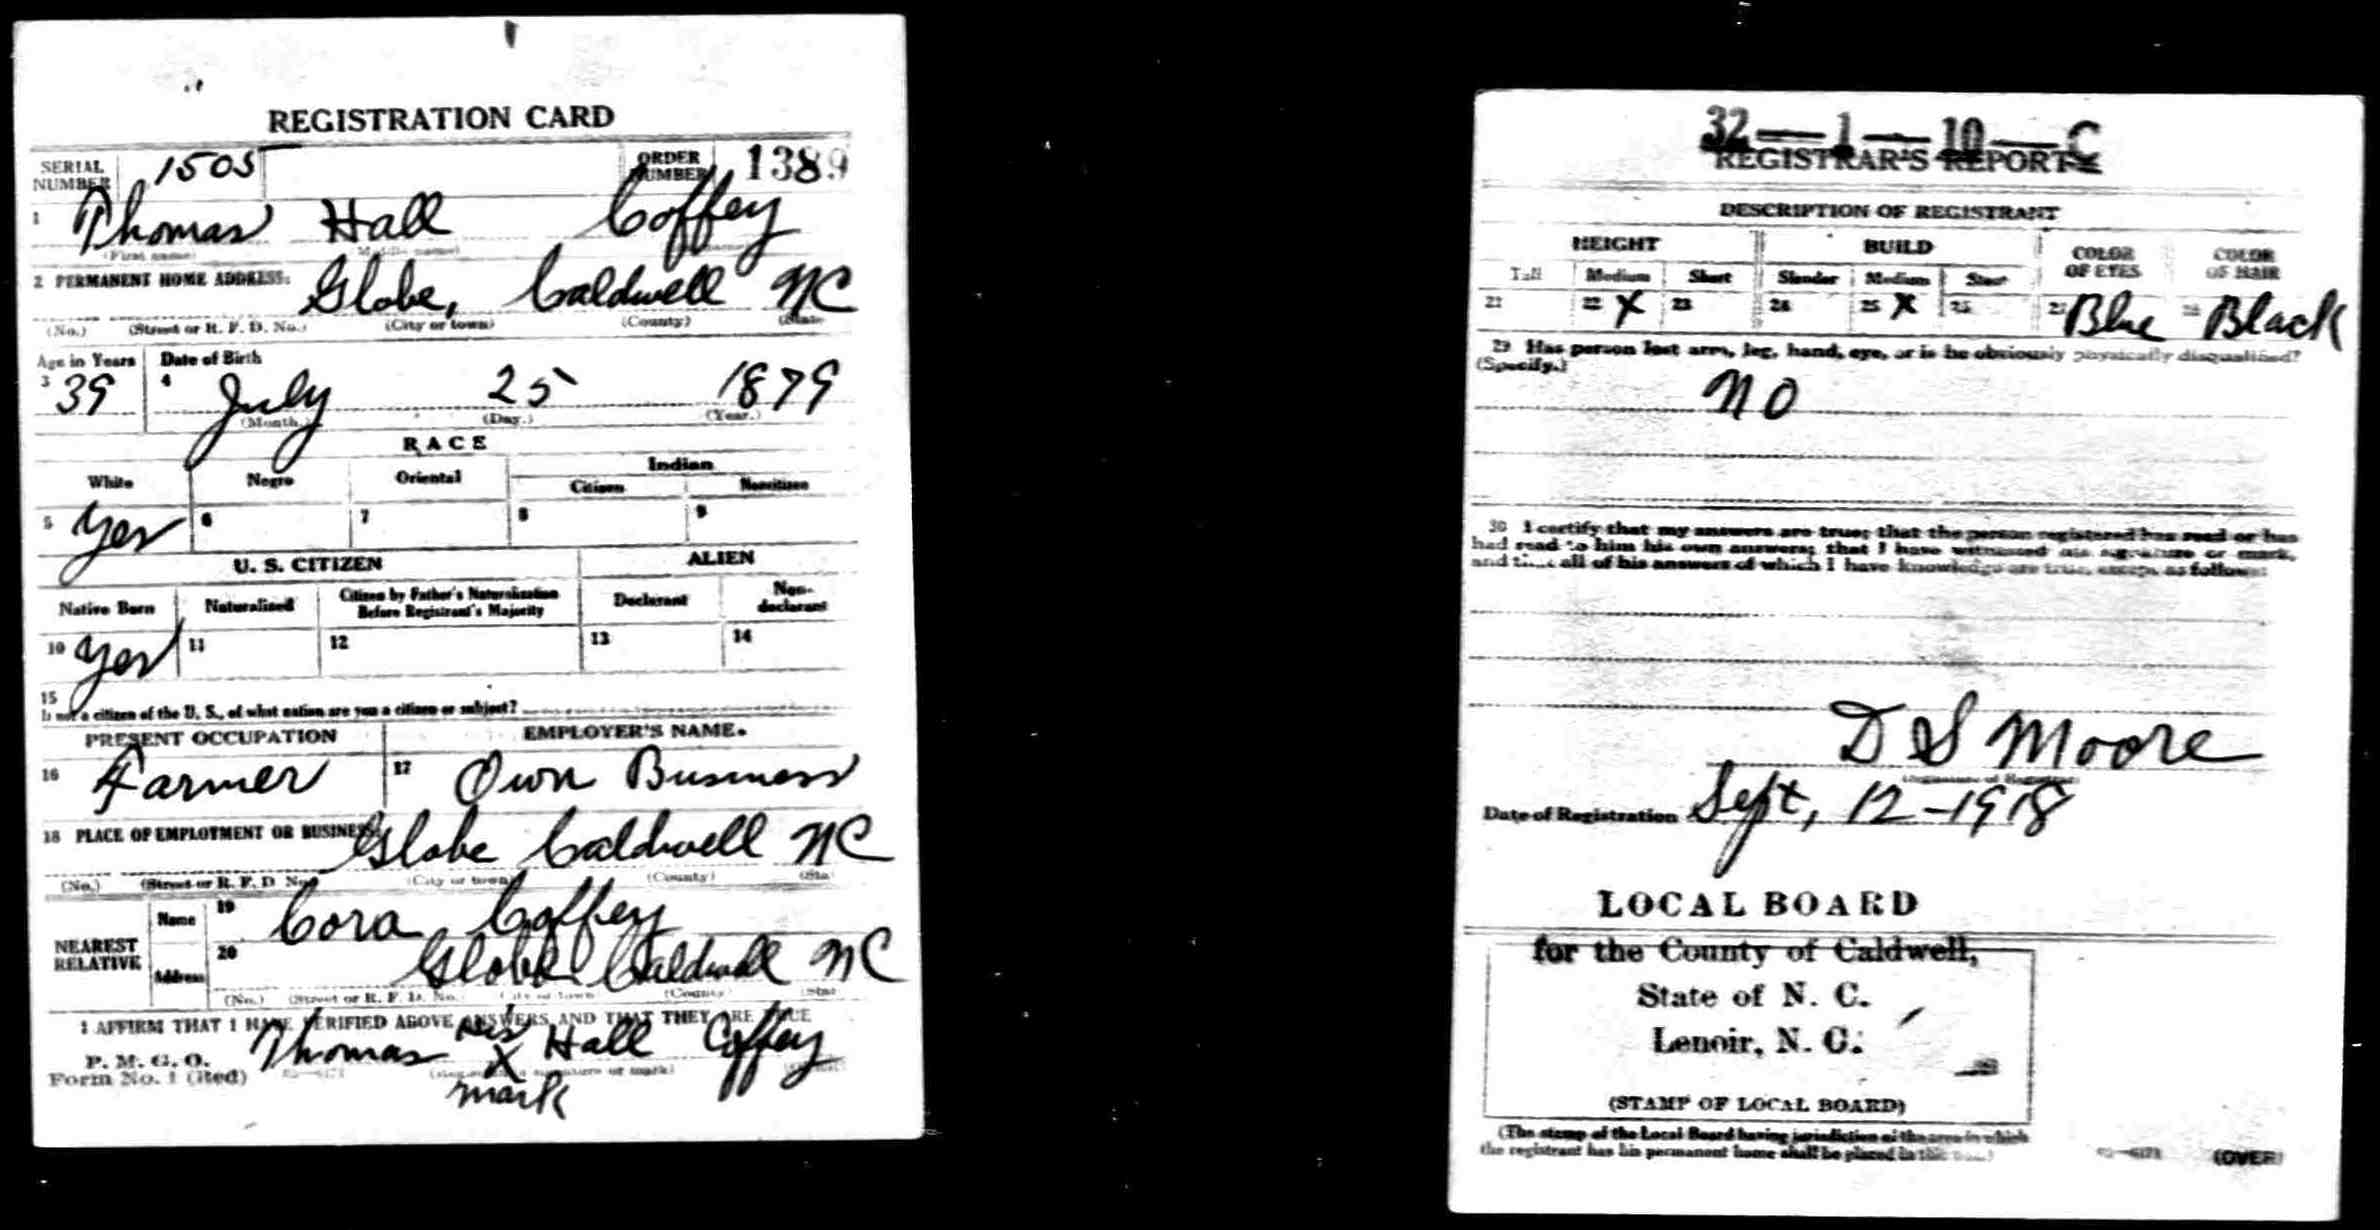 REGISTRATION CARD
SERIAL NUMBER 1505 ORDER NUMBER 1389
1 Thomas Hall Coffey
(First name) (Middle name)
2 PERMANENT HOME ADDRESS: Globe, Caldwell NC
(No.) (Street or R. F. D. No.) (City or town) (County) (State
Age in Years Date of Birth
3 39 4 July 25 1879
(Month.) (Day.) (Year.)
RACE
White Negro Oriental Indian
Citizen Noncitizen
5 Yes 6 7 8 9
U. S. CITIZEN ALIEN
Native Born Naturalized Citizen by Father's Naturalization Before Registrant's Majority Declarant Non-declarant
10 Yes 11 12 13 14
15
If not a citizen of the U. S., of what nation are you a citizen or subject?
PRESENT OCCUPATION EMPLOYER'S NAME.
16 Farmer 17 Own Business
18 PLACE OF EMPLOYMENT OR BUSINESS: Globe Caldwell NC
(No.) (Street or R. F. D. No.) (City or town) (County) (Sta
NEAREST RELATIVE Name 19 Cora Coffey
Address 20 Globe Caldwell NC
(No.) (Street or R. F. D. No. (City or town (County) (Stat
I AFFIRM THAT I HAVE VERIFIED ABOVE ANSWERS AND THAT THEY ARE TRUE
P. M. G. O.
Form No. 1 (Red)
Thomas his X mark Hall Coffey
(Registrant's signature or mark)
32—1—10—C
REGISTRAR'S REPORT
DESCRIPTION OF REGISTRANT
HEIGHT BUILD COLOR OF EYES COLOR OF HAIR
Tall Medium Short Slender Medium Stout
21 22 X 23 24 25 X 27 Blue Black
29 Has person lost arm, leg, hand, eye, or is he obviously physically disqualified?
(Specify.)
NO
30 I certify that my answers are true; that the person registered has read or has
had read to him his own answers; that I have witnessed his signature or mark,
and that all of his answers of which I have knowledge are true, except as follows:
D S Moore
(Signature of Registrar)
Date of Registration Sept, 12-1918
LOCAL BOARD
for the County of Caldwell,
State of N. C.
Lenoir, N. C.
(STAMP OF LOCAL BOARD)
(The stamp of the Local Board having jurisdiction of the area in which
the registrant has his permanent home shall be placed in this box.)
(OVER)